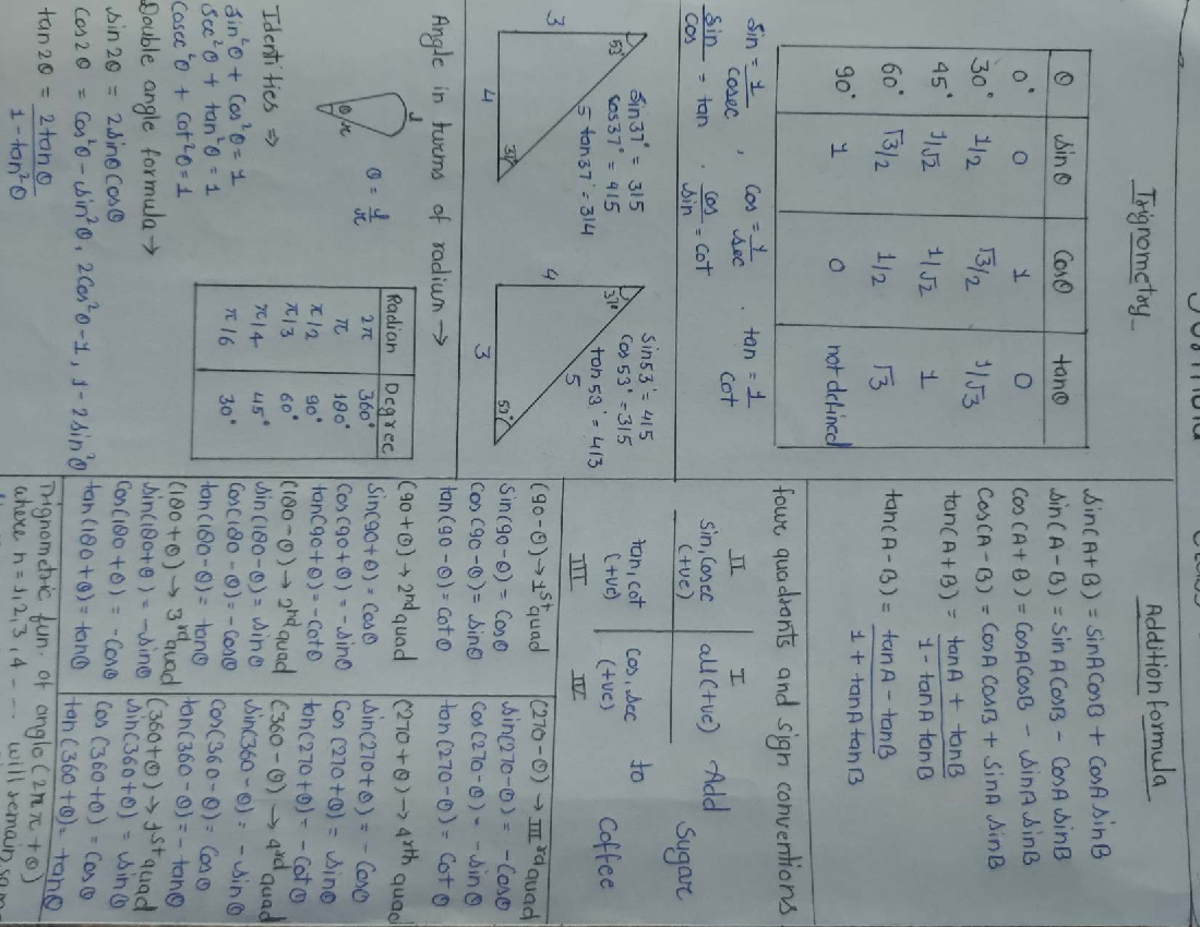 Trignometry
θ sinθ cosθ tanθ
0° 0 1 0
30° 1/2 √3/2 1/√3
45° 1/√2 1/√2 1
60° √3/2 1/2 √3
90° 1 0 not defined
sin = 1/cosec , cos = 1/sec . tan = 1/cot
sin/cos = tan . cos/sin = cot
sin37° = 3/5
cos37° = 4/5
tan37° = 3/4
53°
5
3
4
37°
sin53° = 4/5
cos53° = 3/5
tan53° = 4/3
37°
5
4
3
53°
Angle in turms of radium →
θ r l
θ = l/r
Radian Degree
2π 360°
π 180°
π/2 90°
π/3 60°
π/4 45°
π/6 30°
Identities ⇒
sin²θ + cos²θ = 1
sec²θ + tan²θ = 1
cosec²θ + cot²θ = 1
Double angle formula →
sin2θ = 2sinθ cosθ
cos2θ = cos²θ - sin²θ, 2cos²θ-1, 1-2sin²θ
tan2θ = 2tanθ/1-tan²θ
Addition formula
sin(A+B) = sinA cosB + cosA sinB
sin(A-B) = sinA cosB - cosA sinB
cos(A+B) = cosA cosB - sinA sinB
cos(A-B) = cosA cosB + sinA sinB
tan(A+B) = tanA + tanB/1-tanA tanB
tan(A-B) = tanA - tanB/1+tanA tanB
four quadrants and sign conventions
II I
sin, cosec (+ve) all(+ve) Add Sugar
tan, cot (+ve) cos, sec (+ve) to Coffee
III IV
(90-θ) → 1st quad
sin(90-θ) = cosθ
cos(90-θ) = sinθ
tan(90-θ) = cotθ
(90+θ) → 2nd quad
sin(90+θ) = cosθ
cos(90+θ) = -sinθ
tan(90+θ) = -cotθ
(180-θ) → 2nd quad
sin(180-θ) = sinθ
cos(180-θ) = -cosθ
tan(180-θ) = tanθ
(180+θ) → 3rd quad
sin(180+θ) = -sinθ
cos(180+θ) = -cosθ
tan(180+θ) = tanθ
(270-θ) → III rd quad
sin(270-θ) = -cosθ
cos(270-θ) = -sinθ
tan(270-θ) = cotθ
(270+θ) → 4rth quad
sin(270+θ) = -cosθ
cos(270+θ) = sinθ
tan(270+θ) = -cotθ
(360-θ) → 4rd quad
sin(360-θ) = -sinθ
cos(360-θ) = cosθ
tan(360-θ) = -tanθ
(360+θ) → 1st quad
sin(360+θ) = sinθ
cos(360+θ) = cosθ
tan(360+θ) = tanθ
Trignometric fun. of angle (2nπ+θ)
where n=1,2,3,4 --- will remain same